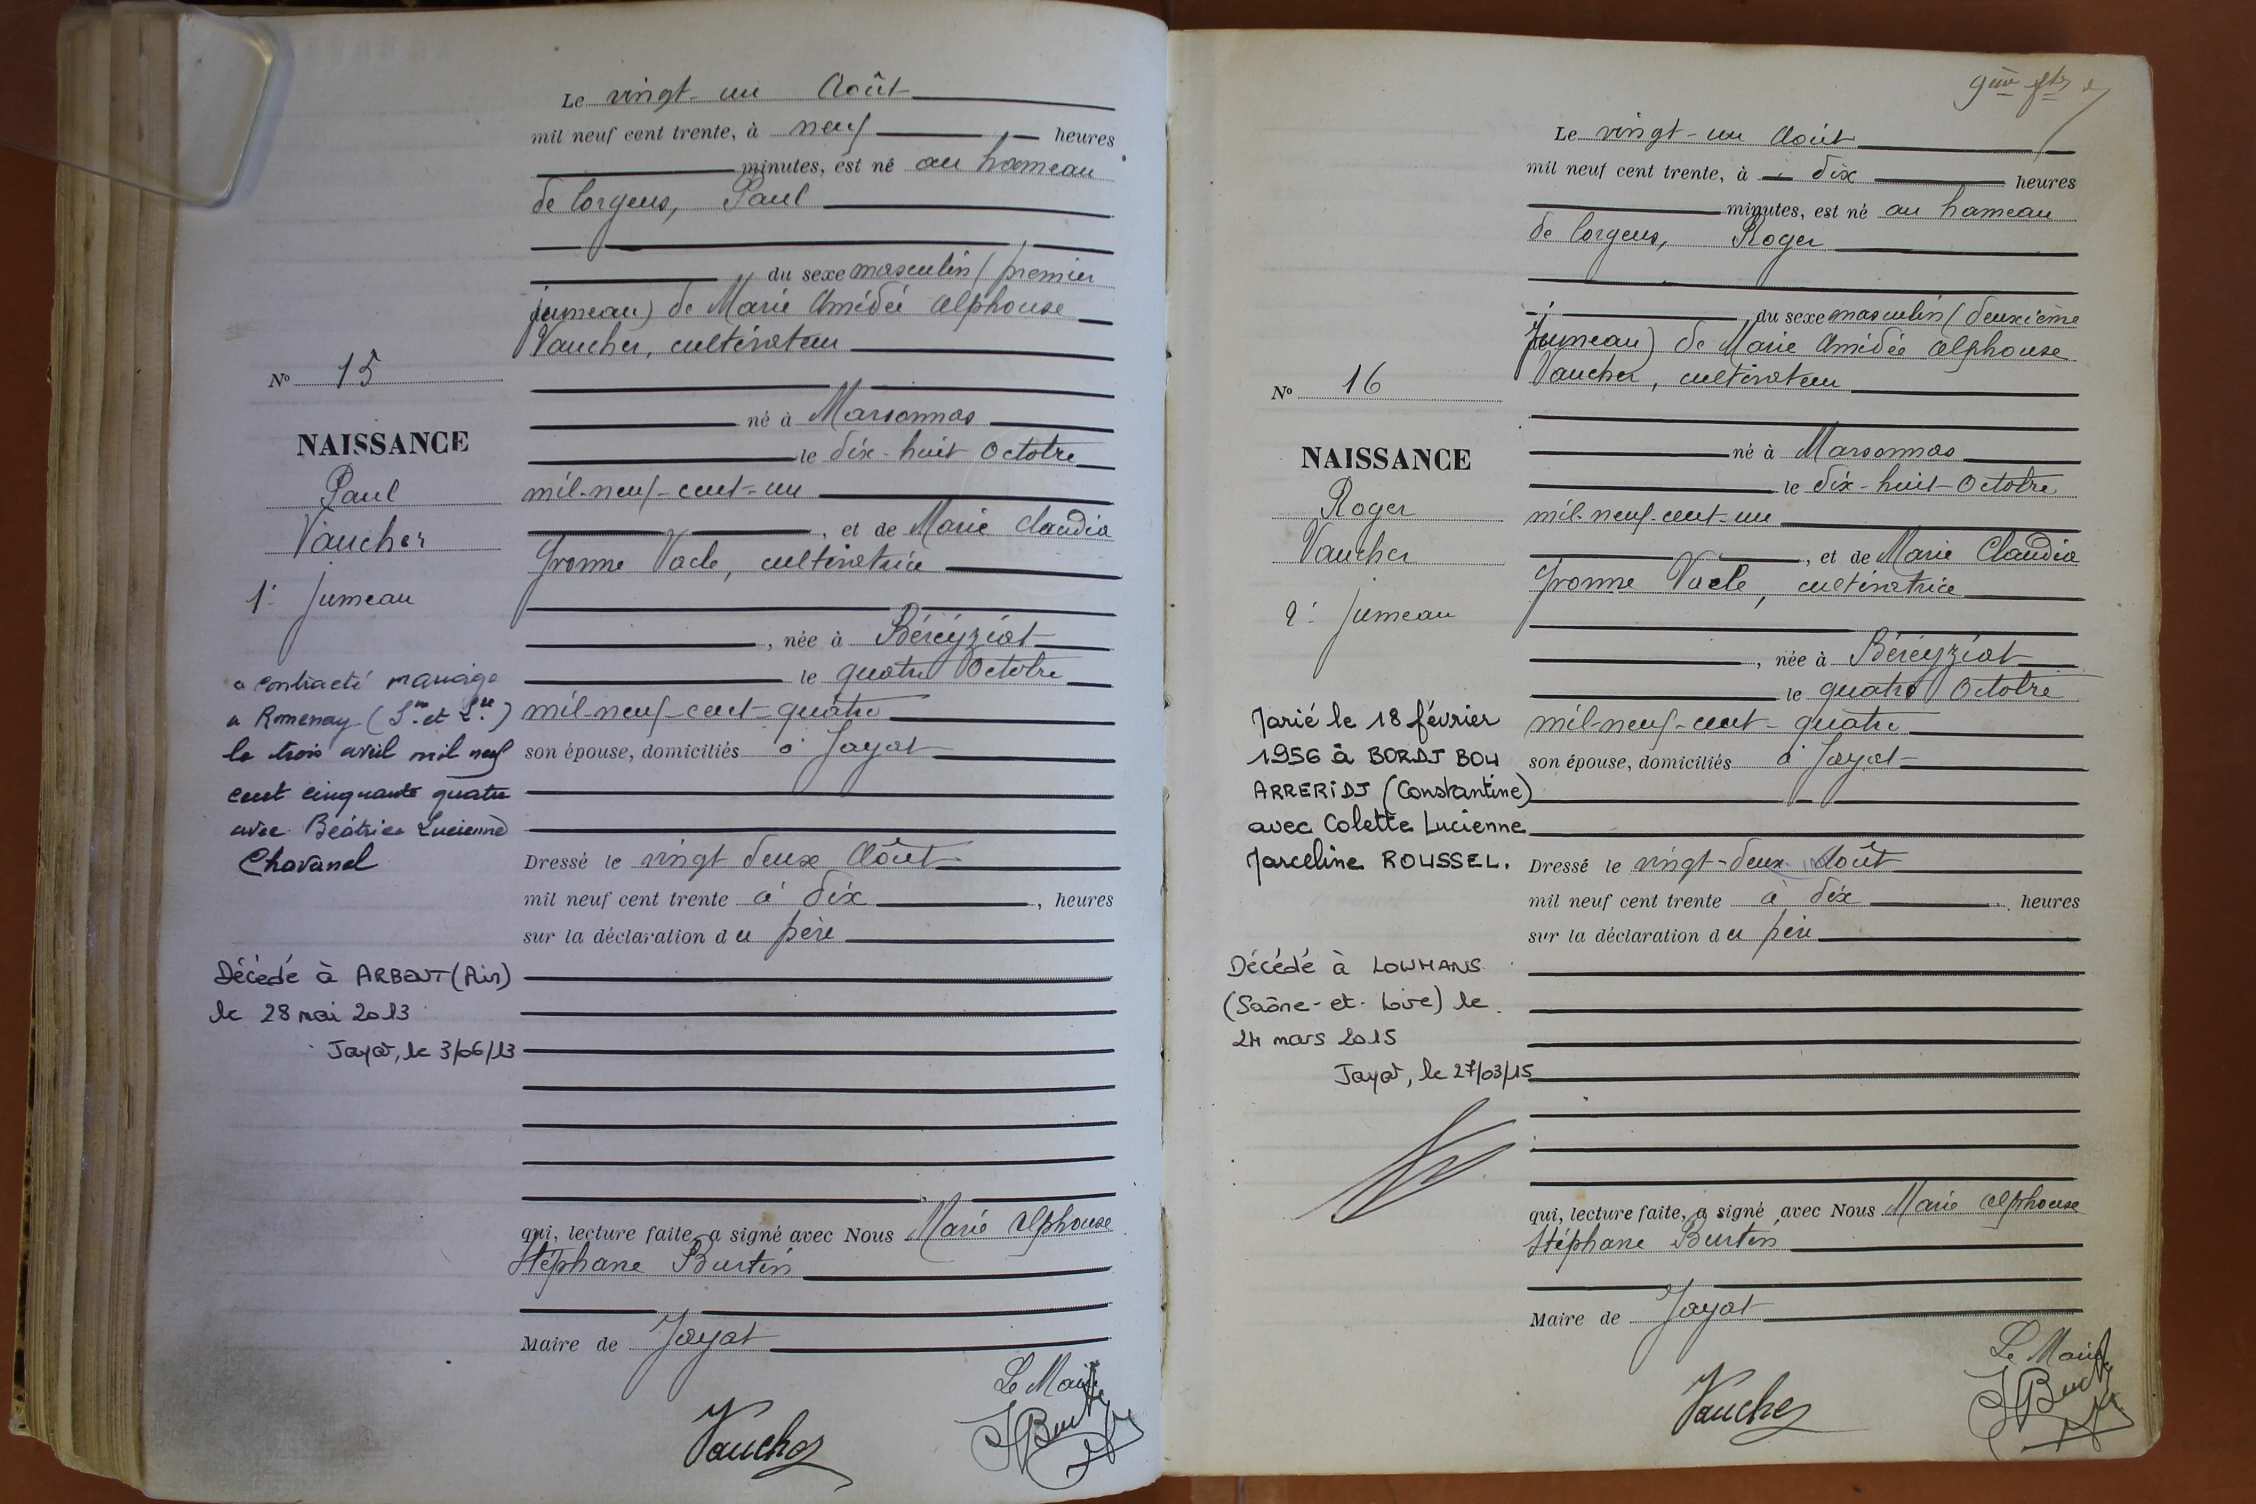 Le vingt-un Août
mil neuf cent trente, à neuf heures
minutes, est né au hameau
de Corgeus, Paul
du sexe masculin (premier
jumeau) de Marie Amédée Alphonse
Vaucher, cultivateur
né à Marsonnas
le dix-huit Octobre
mil-neuf-cent-un
, et de Marie Claudia
Yvonne Vacle, cultivatrice
, née à Béréyziat
le quatre Octobre
mil-neuf-cent-quatre
son épouse, domiciliés à Jayat
Dressé le vingt deux Août
mil neuf cent trente à dix , heures
sur la déclaration du père
qui, lecture faite, a signé avec Nous Marie Alphonse
Stéphane Burtin
Maire de Jayat
Le Maire
Vaucher
Burtin
No 15
NAISSANCE
Paul
Vaucher
1er Jumeau
a contracté mariage
à Romenay (S. et L.)
le trois avril mil neuf
cent cinquante quatre
avec Béatrice Lucienne
Chavanel
Décédé à ARBENT (Ain)
le 28 mai 2013
Jayat, le 3/06/13
9me
Le vingt-un Août
mil neuf cent trente, à dix heures
minutes, est né au hameau
de Corgeus, Roger
du sexe masculin (deuxième
Jumeau) de Marie Amédée Alphonse
Vaucher, cultivateur
né à Marsonnas
le dix-huit Octobre
mil-neuf-cent-un
, et de Marie Claudia
Yvonne Vacle, cultivatrice
, née à Béréyziat
le quatre Octobre
mil-neuf-cent-quatre
son épouse, domiciliés à Jayat
Dressé le vingt-deux Août
mil neuf cent trente à dix heures
sur la déclaration du père
qui, lecture faite, a signé avec Nous Marie Alphonse
Stéphane Burtin
Maire de Jayat
Le Maire
Vaucher
Burtin
No 16
NAISSANCE
Roger
Vaucher
2e Jumeau
Marié le 18 février
1956 à BORDJ BOU
ARRERIDJ (Constantine)
avec Colette Lucienne
Marceline ROUSSEL.
Décédé à LOUHANS
(Saône-et-Loire) le
24 mars 2015
Jayat, le 27/03/15